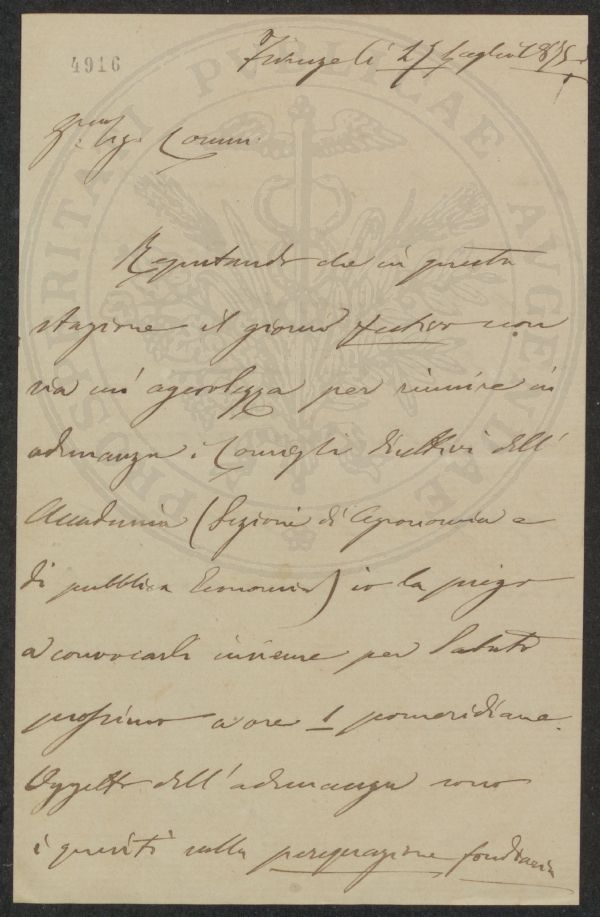 4916
Firenze li 27 Luglio 1875
Sig. Comm.
PROSPERITATI PUBLICAE AUGENDAE
Reputando che in questa
stagione il giorno festivo non
sia un' agevolezza per riunire in
adunanza i Consigli Direttivi dell'
Accademia (Sezioni di Agronomia e
di pubblica Economia) io la prego
a convocarli insieme per Sabato
prossimo a ore 1 pomeridiane.
Oggetto dell' adunanza sono
i quesiti sulla perequazione fondiaria